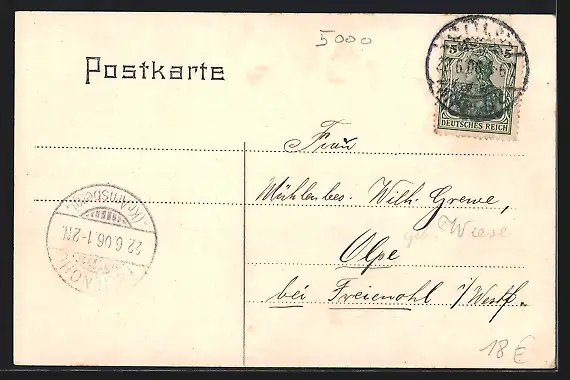 5000
Postkarte
5 5
DEUTSCHES REICH
Frau
Mühlenbes. Wilh. Grewe,
geb. Wiese
Olpe
bei Freienohl i/Westf.
(Kr. Arnsberg)
22.6.06.1-2N.
FREIENOHL
18 €